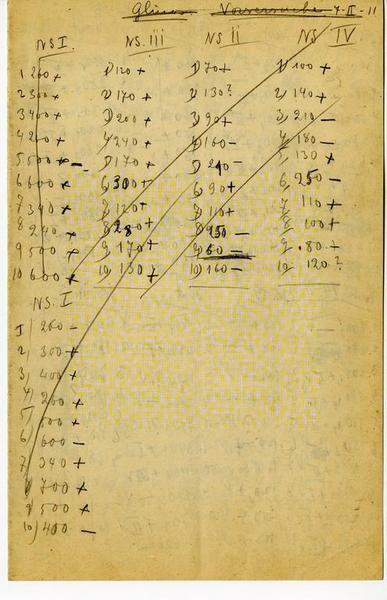 Vorversuche 4-II-11
NS I. NS. III NS II NS IV
1 200 + 1) 120 + 1) 70 + 1) 100 +
2 300 + 2) 170 + 2) 130 ? 2) 140 +
3 400 + 3) 200 + 3) 90 + 3) 210 -
4 200 + 4) 240 + 4) 160 - 4) 180 -
5 500 + - 5) 170 + 5) 5) 130 +
6 600 + 6) 300 + 6) 90 + 6) 250 -
7 340 + 7) 120 + 7) 110 + 7) 110 +
8 240 + 8) 8) 8) 100 +
9 500 + 9) 170 + 9) 60 - 9) 80 +
10 600 + 10) 130 + 10) 160 - 10) 120 ?
NS. I
1) 260 -
2) 300 +
3) 400 +
4) 200 +
5) +
6) 600 -
7) 340 +
700 +
9) 500 +
10) 400 -